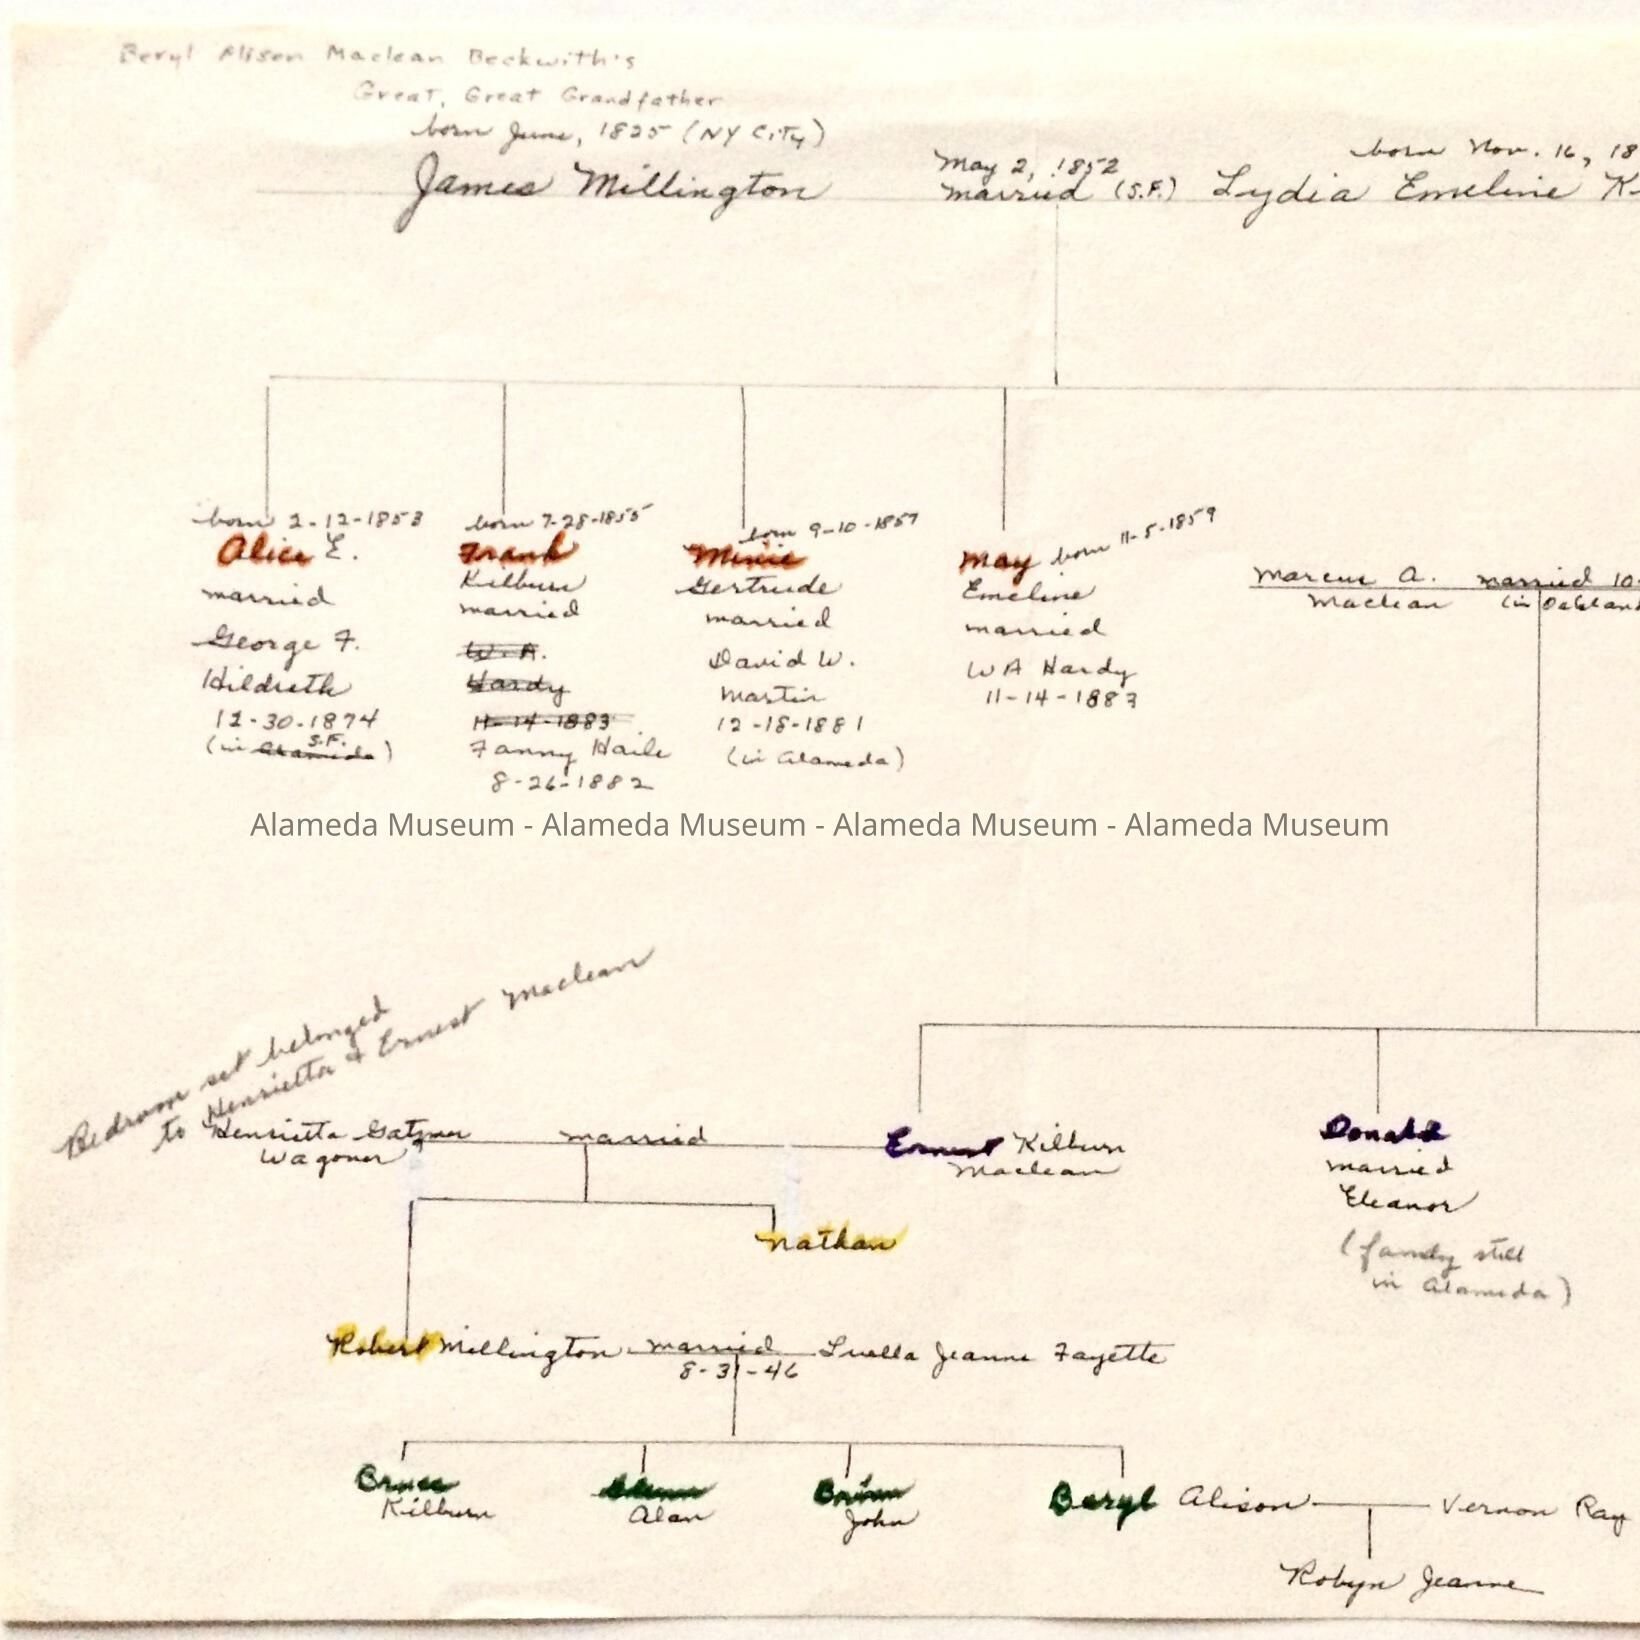 Beryl Alison Maclean Beckwith's
Great, Great Grandfather
born June, 1825 (NY City)
James Millington
May 2, 1852
married (S.F.)
born Nov. 16, 18
Lydia Emeline K
born 2-12-1853
Alice E.
married
George F.
Hildreth
12-30-1874
(in Alameda S.F.)
born 7-28-1855
Frank
Kilburn
married
W.A.
Hardy
11-14-1883
Fanny Haile
8-26-1882
born 9-10-1857
Minie
Gertrude
married
David W.
Martin
12-18-1881
(in Alameda)
May born 11-5-1859
Emeline
married
WA Hardy
11-14-1883
Marcus A. married 10-
Maclean (in Oakland
Alameda Museum - Alameda Museum - Alameda Museum - Alameda Museum
Bedroom set belonged
to Henrietta & Ernest Maclean
Henrietta married Ernest Kilburn
Wagoner Maclean
Donald
married
Eleanor
(family still
in Alameda)
Nathan
Robert Millington married Luella Jeanne Fayette
8-31-46
Bruce
Kilburn
Glenn
Alan
Brian
John
Beryl Alison Vernon Ray
Robyn Jeanne